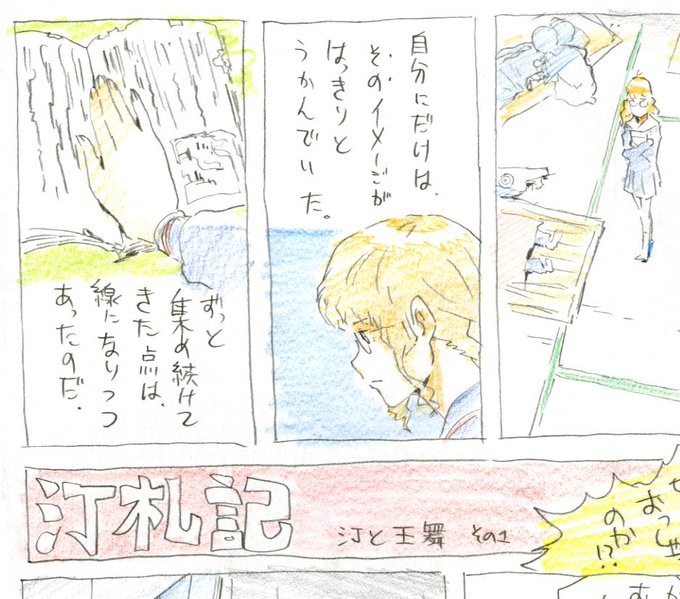 自分にだけは、
そのイメージが
はっきりと
うかんでいた。
ずっと
集め続けて
きた点は、
線になりつつ
あったのだ.
汀札記
汀と王舞 その1
のか!?